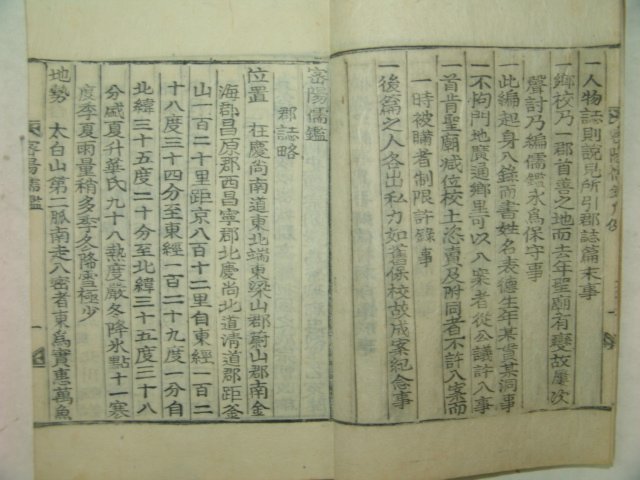 一人物誌則說見所引郡誌篇末事
一鄉校乃一郡首善之地而去年聖廟有變故屢次
聲討乃編儒鑑永爲保守事
一此編起身八錄而書姓名表德生年某貫某洞事
一不拘門地廣通鄉里可以入案者從公議許入事
一首肯聖廟减位校土恣賣及附同者不許入案而
一時被購者制限許錄事
一後篇之人各出私力如舊保校故成案紀念事
密陽儒鑑
郡誌略
位置 在慶尚南道東北端東梁山郡蔚山郡南金
海郡昌原郡西昌寧郡北慶尚北道清道郡距釜
山一百二十里距京八百十二里自東經一百二
十八度三十四分至東經一百二十九度一分自
北緯三十五度二十分至北緯三十五度三十八
分盛夏升華氏九十八熱度嚴冬降氷點十一寒
度季夏雨量稍多季冬降雪極少
地勢 太白山第二脈南走入密者東爲實惠萬魚
密陽儒鑑
一